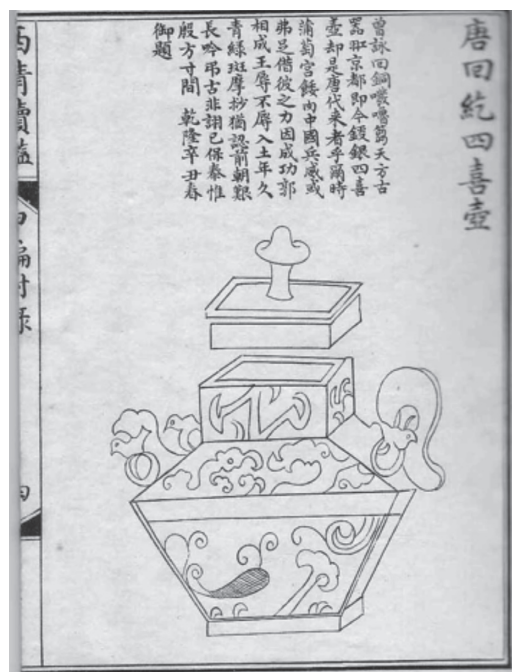 唐回紇四喜壺
曾詠回銅嗷嘈篤天方古
器班京都即今鍰銀四喜
壺却是唐代来者乎爾時
蒲萄宮餧向中國兵威或
弗足借彼之力因成功郭
相成王辱不辱入土年久
青綠斑摩抄猶認前朝艱
長吟弔古非詡已保泰惟
殷方寸間 乾隆辛丑春
御題
西清續鑑
甲編附錄